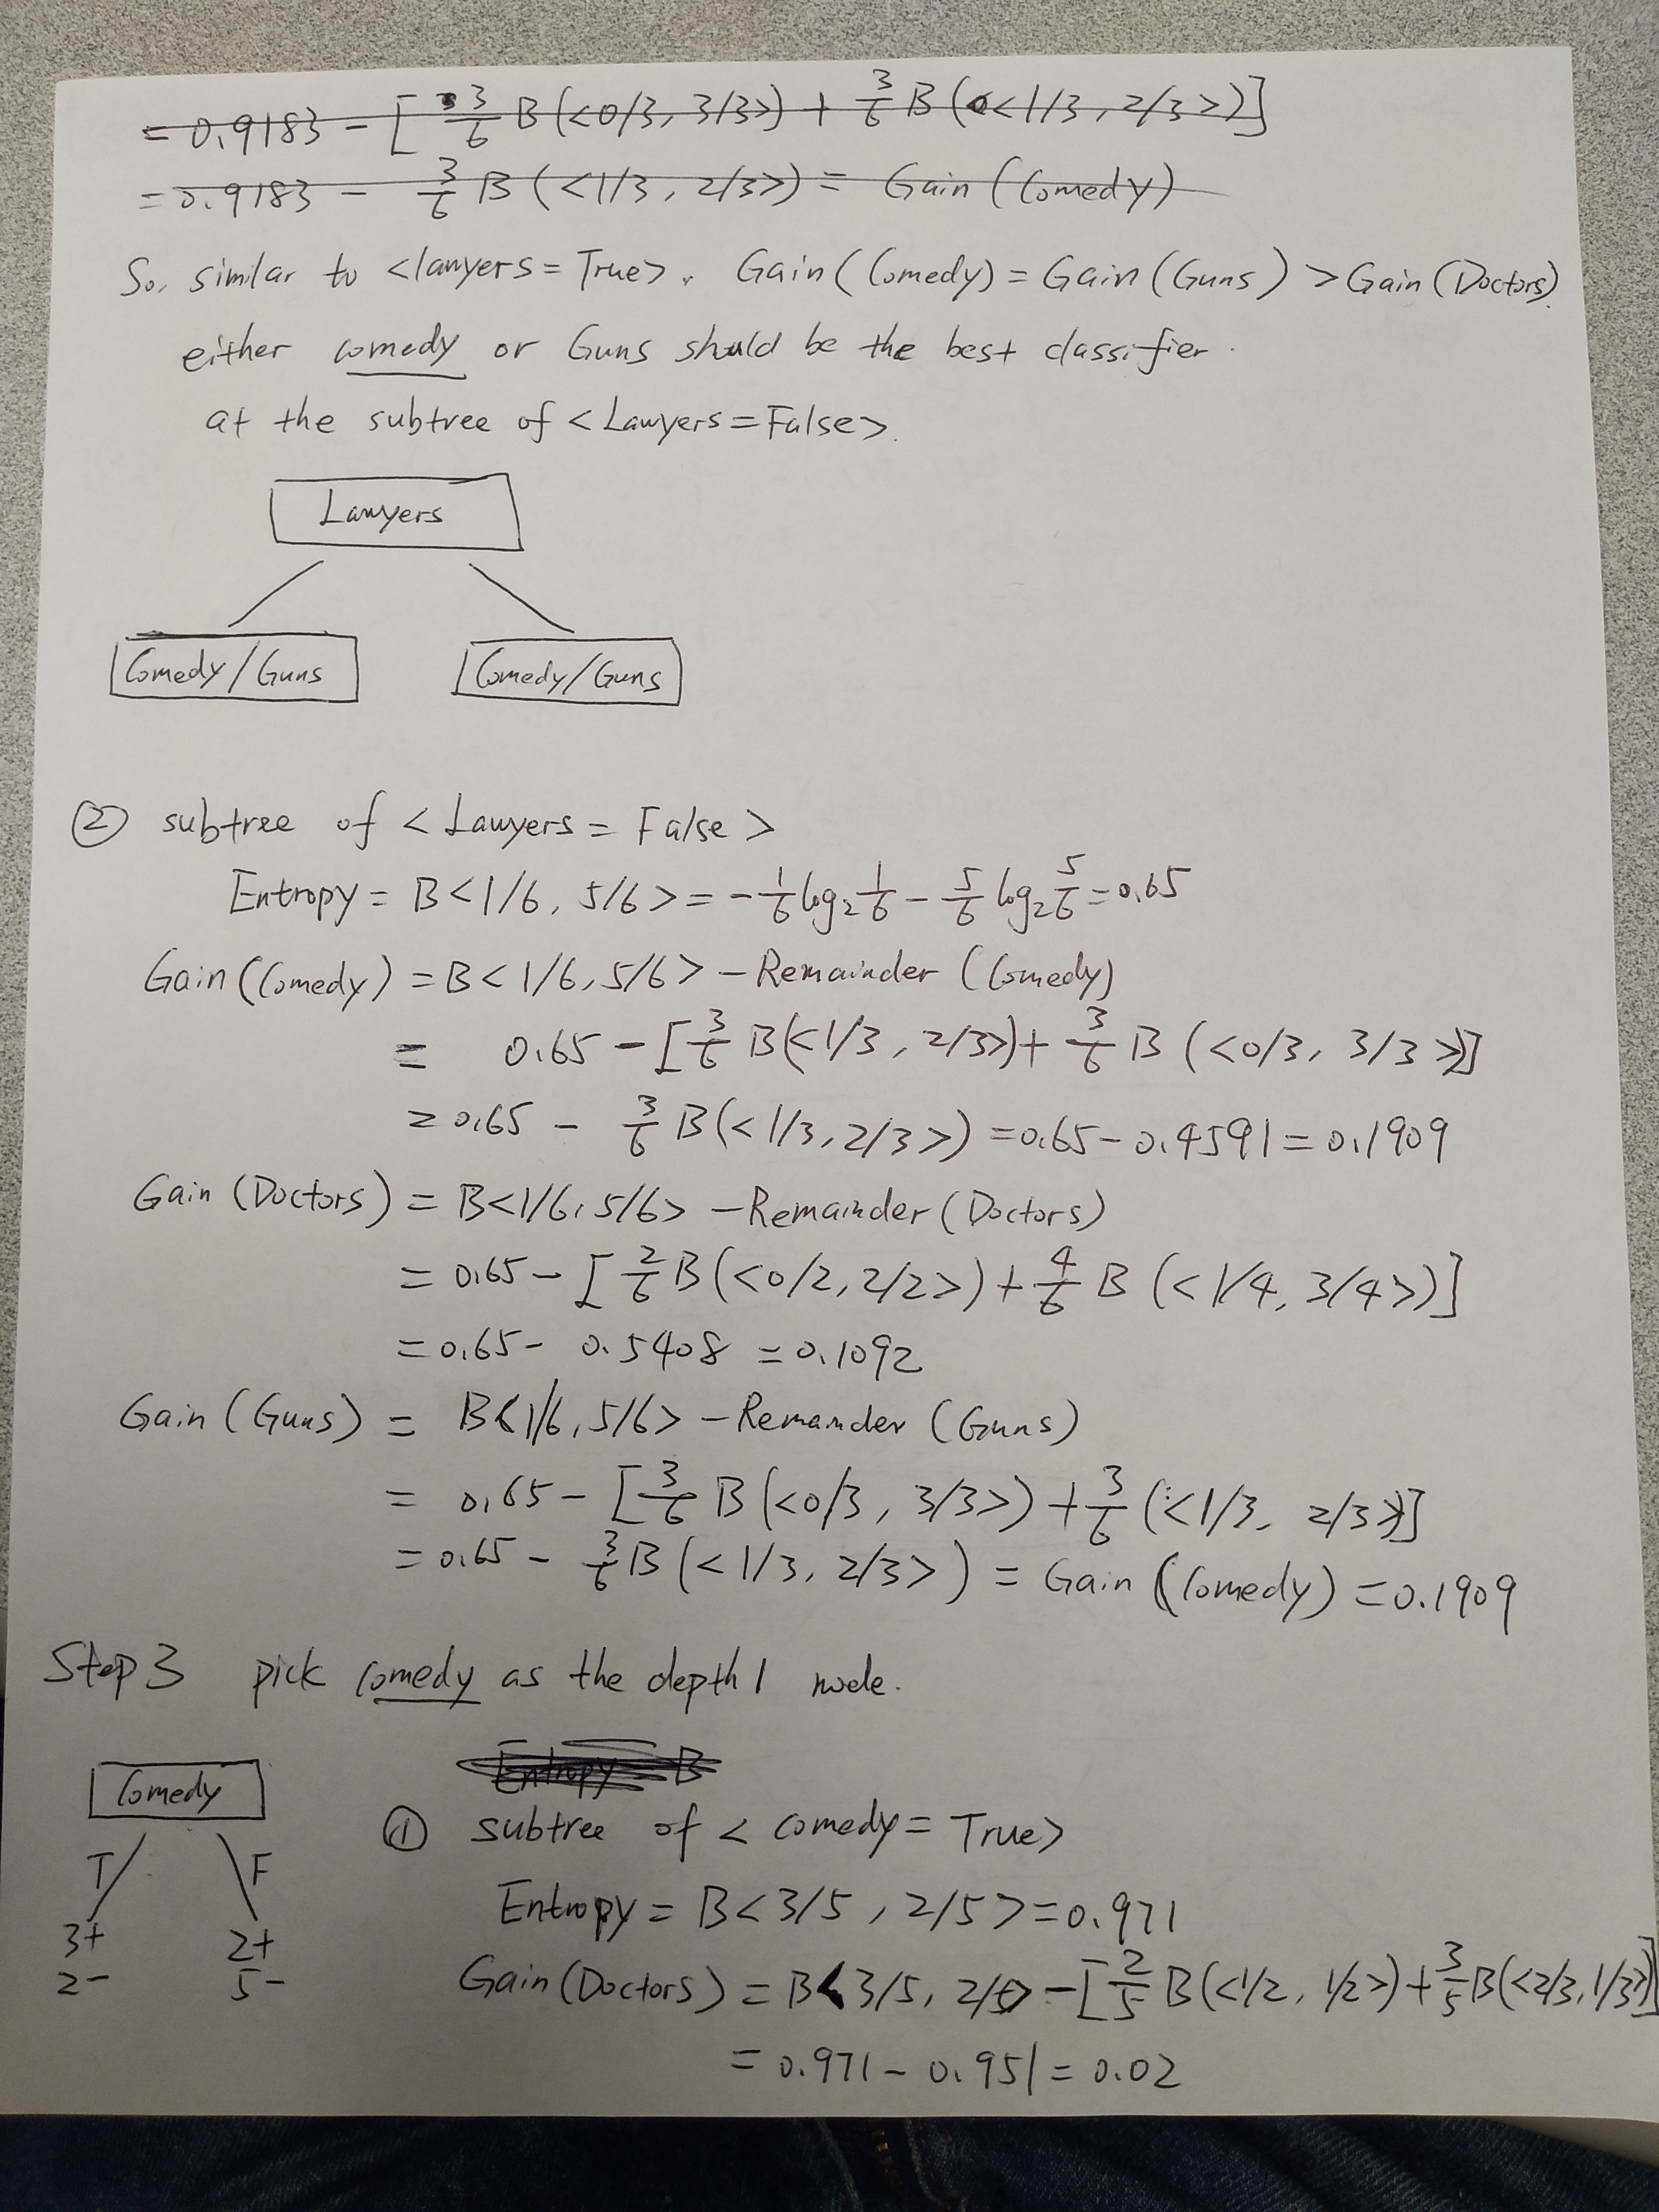 = 0.9183 - [ 3/6 B(<0/3, 3/3>) + 3/6 B(<1/3, 2/3>)]
= 0.9183 - 3/6 B(<1/3, 2/3>) = Gain (Comedy)
So, similar to <lawyers = True>, Gain(Comedy) = Gain(Guns) > Gain(Doctors).
either comedy or Guns should be the best classifier.
at the subtree of <Lawyers = False>.
Lawyers
Comedy/Guns
Comedy/Guns
② subtree of < Lawyers = False >
Entropy = B<1/6, 5/6> = -1/6 log₂ 1/6 - 5/6 log₂ 5/6 = 0.65
Gain(Comedy) = B<1/6, 5/6> - Remainder (Comedy)
= 0.65 - [3/6 B(<1/3, 2/3>) + 3/6 B (<0/3, 3/3>)]
= 0.65 - 3/6 B(<1/3, 2/3>) = 0.65 - 0.4591 = 0.1909
Gain (Doctors) = B<1/6, 5/6> - Remainder (Doctors)
= 0.65 - [2/6 B(<0/2, 2/2>) + 4/6 B (<1/4, 3/4>)]
= 0.65 - 0.5408 = 0.1092
Gain (Guns) = B<1/6, 5/6> - Remainder (Guns)
= 0.65 - [3/6 B(<0/3, 3/3>) + 3/6 (<1/3, 2/3>)]
= 0.65 - 3/6 B(<1/3, 2/3>) = Gain (Comedy) = 0.1909
Step 3 pick comedy as the depth 1 node.
Entropy B
Comedy
T F
3+ 2+
2- 5-
① subtree of < comedy = True>
Entropy = B<3/5, 2/5> = 0.971
Gain(Doctors) = B<3/5, 2/5> - [2/5 B(<1/2, 1/2>) + 3/5 B(<2/3, 1/3>)]
= 0.971 - 0.951 = 0.02